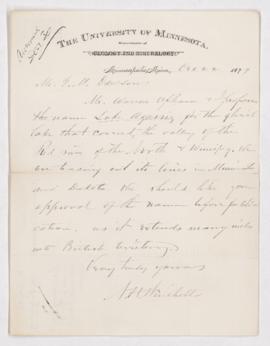 THE UNIVERSITY OF MINNESOTA.
Department of
GEOLOGY AND MINERALOGY.
Minneapolis, Minn., Dec 22 1879
Mr. G. M. Dawson
Mr. Warren Upham & I propose
the name Lake Agassiz for the glacial
lake that covered the valley of the
Red river of the North & Winnipeg. We
are tracing out its lines in Minnesota
and Dakota. We should like your
approval of the name before publi-
cation, as it extends many miles
into British territory.
Very truly yours
N H Winchell